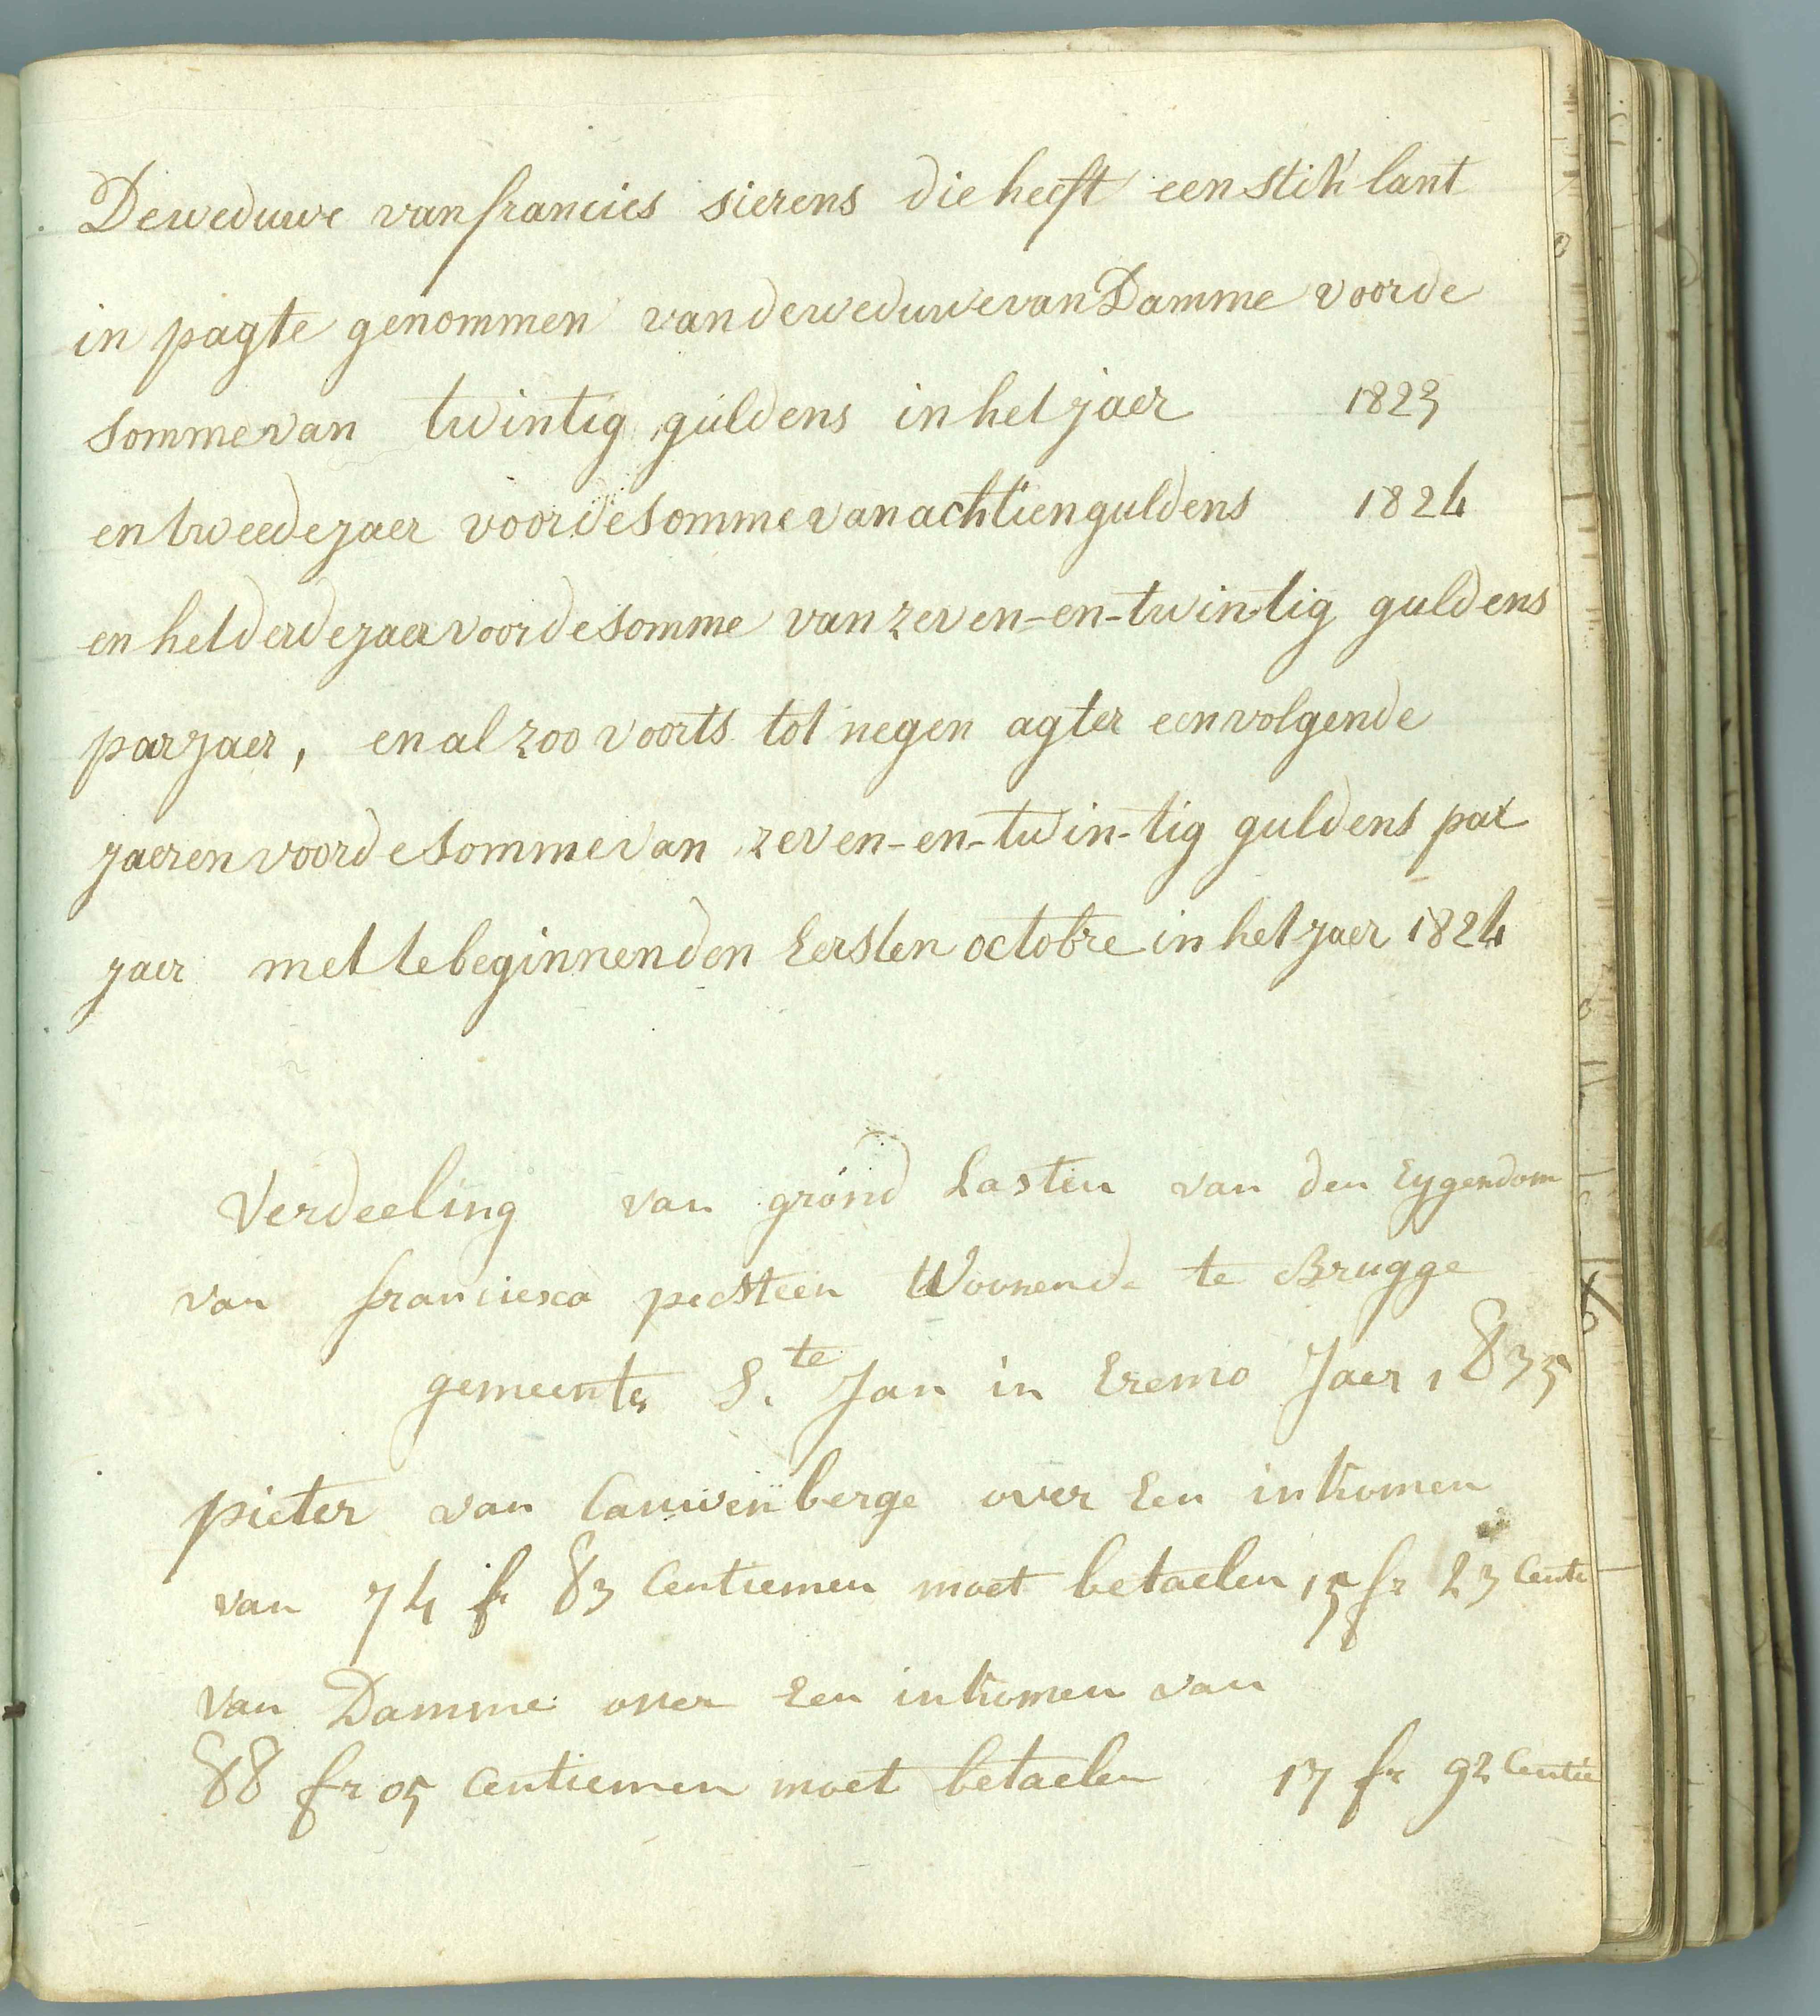 De weduwe van francies sierens die heeft een stik lant
in pagte genommen van de weduwe van Damme voor de
somme van twintig guldens in het jaer 1823
en tweede jaer voor de somme van achttien guldens 1824
en het derde jaer voor de somme van zeven-en-twin-tig guldens
par jaer, en al zoo voorts tot negen agter een volgende
jaeren voor de somme van zeven-en-twin-tig guldens par
jaer met te beginnen den Eersten octobre in het jaer 1824
Verdeeling van grond Lasten van den Eygendom
van franciesca pecsteen Woonende te Brugge
gemeente S.te Jan in Eremo Jaer 1835
pieter van Cauwenberge over Een inkomen
van 74 fr 83 Centiemen moet betaelen 15 fr 23 Cente
van Damme over Een inkomen van
88 fr 05 Centiemen moet betaelen 17 fr 92 Centie